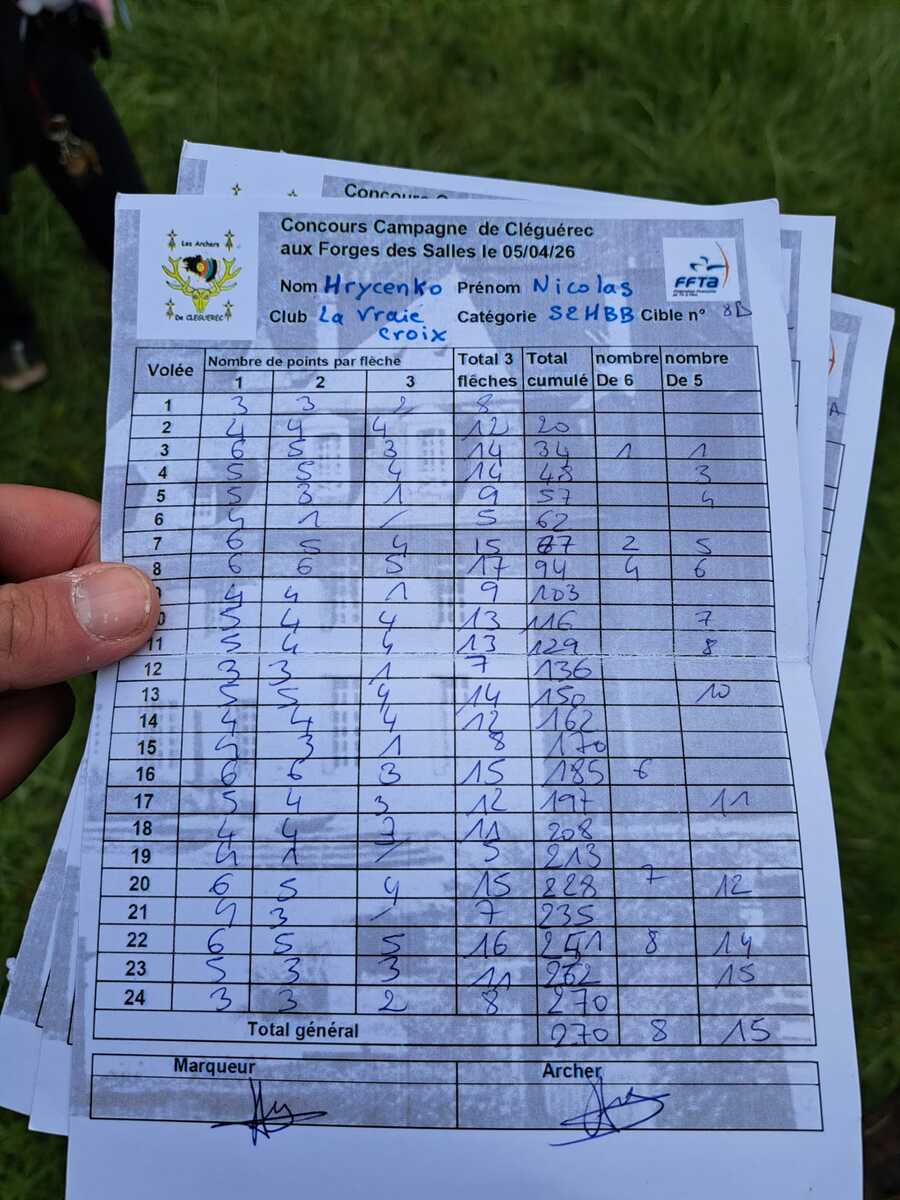 Concours
Les Archers
De CLEGUEREC
Concours Campagne de Cléguérec
aux Forges des Salles le 05/04/26
FFTA
Nom Hrycenko Prénom Nicolas
Club La Vraie Croix Catégorie S2HBB Cible n° 8B
Volée Nombre de points par flèche Total 3 flèches Total cumulé nombre De 6 nombre De 5
1 2 3
1 3 3 2 8
2 4 4 4 12 20
3 6 5 3 14 34 1 1
4 5 5 4 14 48 3
5 5 3 1 9 57 4
6 4 1 / 5 62
7 6 5 4 15 77 2 5
8 6 6 5 17 94 4 6
4 4 1 9 103
0 5 4 4 13 116 7
11 5 4 4 13 129 8
12 3 3 1 7 136
13 5 5 4 14 150 10
14 4 4 4 12 162
15 4 3 1 8 170
16 6 6 3 15 185 6
17 5 4 3 12 197 11
18 4 4 3 11 208
19 4 1 / 5 213
20 6 5 4 15 228 7 12
21 4 3 / 7 235
22 6 5 5 16 251 8 14
23 5 3 3 11 262 15
24 3 3 2 8 270
Total général 270 8 15
Marqueur Archer
A